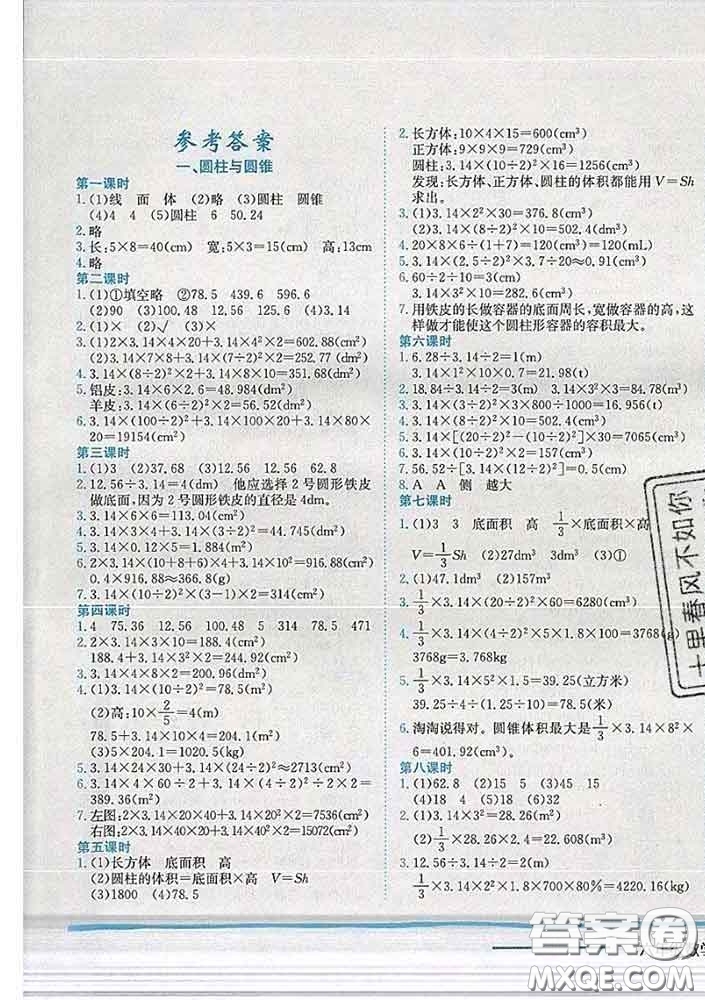 参考答案
一、圆柱与圆锥
第一课时
1.(1)线 面 体 (2)略 (3)圆柱 圆锥
(4)4 4 (5)圆柱 6 50.24
2.略
3.长:5×8=40(cm) 宽:5×3=15(cm) 高:13cm
4.略
第二课时
1.(1)①填空略 ②78.5 439.6 596.6
(2)90 (3)100.48 12.56 125.6 (4)3.14
2.(1)× (2)√ (3)×
3.(1)2×3.14×4×20+3.14×4²×2=602.88(cm²)
(2)3.14×7×8+3.14×(7÷2)²×2=252.77 (dm²)
4.3.14×(8÷2)²×2+3.14×8×10=351.68(dm²)
5.铝皮:3.14×6×2.6=48.984(dm²)
羊皮:3.14×(6÷2)²×2=56.52(dm²)
6.3.14×(100÷2)²+3.14×100×20+3.14×80×
20=19154(cm²)
第三课时
1.(1)3 (2)37.68 (3)12.56 12.56 62.8
2.12.56÷3.14=4(dm) 他应选择2号圆形铁皮
做底面,因为2号圆形铁皮的直径是4dm。
3.3.14×6×6=113.04(cm²)
4.3.14×3×4+3.14×(3÷2)²=44.745(dm²)
5.3.14×0.12×5=1.884(m²)
6.2×3.14×10×(5-1)×4+3.14×10²×2=916.88(m²)
0.4×916.88≈366.8(g)
7.3.14×(10÷2)²×(3-1)×2=314(cm²)
第四课时
1.4 75.36 12.56 100.48 5 314 78.5 471
2.2×3.14×3×10=188.4(cm²)
188.4+3.14×3²×2=244.92(cm²)
3.3.14×(10÷2)²+3.14×10×2×2=204.1(dm²)
4.(1)3.14×(10÷2)²=78.5(m²)
(2)高:10×2/5=4(m)
78.5+3.14×10×4=204.1(m²)
(3)5×204.1=1020.5(kg)
5.3.14×24×30+3.14×(24÷2)²≈2713(cm²)
6.3.14×4×60÷2+3.14×(4÷2)²÷2×2=
389.36(m²)
7.左图:2×3.14×20×40+3.14×20²×2=7536(cm²)
右图:2×3.14×40×20+3.14×40²×2=15072(cm²)
第五课时
1.(1)长方体 底面积 高
(2)圆柱的体积=底面积×高 V=Sh
(3)1800 (4)78.5
2.长方体:10×4×15=600(cm³)
正方体:9×9×9=729(cm³)
圆柱:3.14×(10÷2)²×16=1256(cm³)
发现:长方体、正方体、圆柱的体积都能用V=Sh
求出。
3.(1)3.14×2²×30=376.8(cm³)
(2)3.14×(8÷2)²×10=502.4(dm³)
4.20×8×6÷(1+7)=120(cm³)=120(mL)
5.3.14×(2.5÷2)²×3.7÷20≈0.91(cm³)
6.60÷2÷10=3(cm)
3.14×3²×10=282.6(cm³)
7.用铁皮的长做容器的底面周长,宽做容器的高,这
样做才能使这个圆柱形容器的容积最大。
第六课时
1.6.28÷3.14÷2=1(m)
3.14×1²×10×0.7=21.98(m³)
2.18.84÷3.14÷2=3(m) 3.14×3²×3=84.78(m³)
3.3.14×(3÷2)²×3×800÷1000=16.956(t)
4.3.14×(8÷2)²×10=502.4(cm³)
5.3.14×[(20÷2)²-(10÷2)²]×30=7065(cm³)
6.3.14×(10÷2)²×2=157(cm³)
7.56.52÷[3.14×(12÷2)²]=0.5(cm)
8.A A 侧 越大
第七课时
1.(1)3 3 底面积 高 1/3×底面积×高
V=1/3Sh (2)27dm³ 3dm³ (3)①
2.(1)47.1dm³ (2)2m³
3.1/3×3.14×(20÷2)²×60=6280(cm³)
4.1/3×3.14×(4÷2)²×5×1.8×100=3768(g)
3768g=3.768kg
5.1/3×3.14×5²×1.5=39.25(立方米)
39.25÷4÷(1.25÷10)=78.5(米)
6.淘淘说得对。圆锥体积最大是1/3×3.14×8²×
6=401.92(cm³)。
第八课时
1.(1)62.8 (2)15 5 (3)45 15
(4)18 4 (5)18 (6)32
2.(1)3.14×3²=28.26(m²)
(2)1/3×28.26×2.4=22.608(m³)
3.12.56÷3.14÷2=2(m)
1/3×3.14×2²×1.8×700×80%=4220.16(kg)
十里春风不如你
答案圈
MXQE.COM
数学